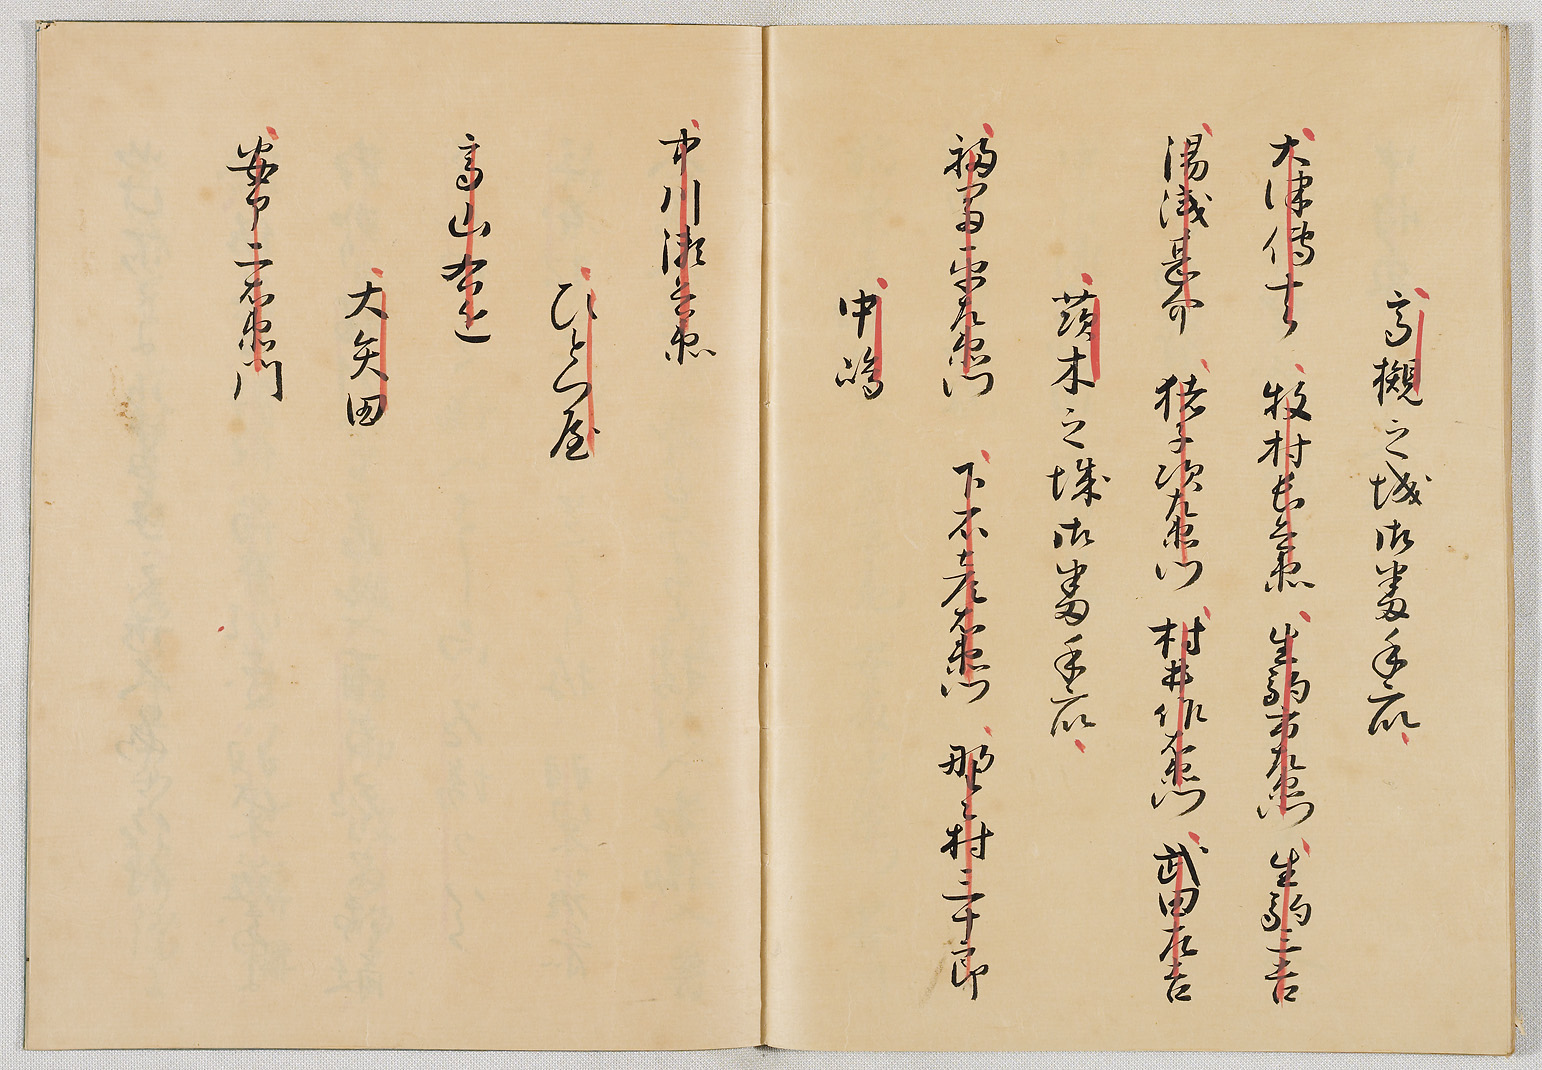 高槻之城御番手衆
大津傳十郎 牧村長兵衛 生駒市左衛門 生駒三吉
湯浅甚介 猪子次左衛門 村井作右衛門 武田左吉
茨木之城御番手衆
福冨平左衛門 下石彦右衛門 野々村三十郎
中嶋
中川瀬兵衛
ひとつ屋
高山右近
大矢田
安部二右衛門